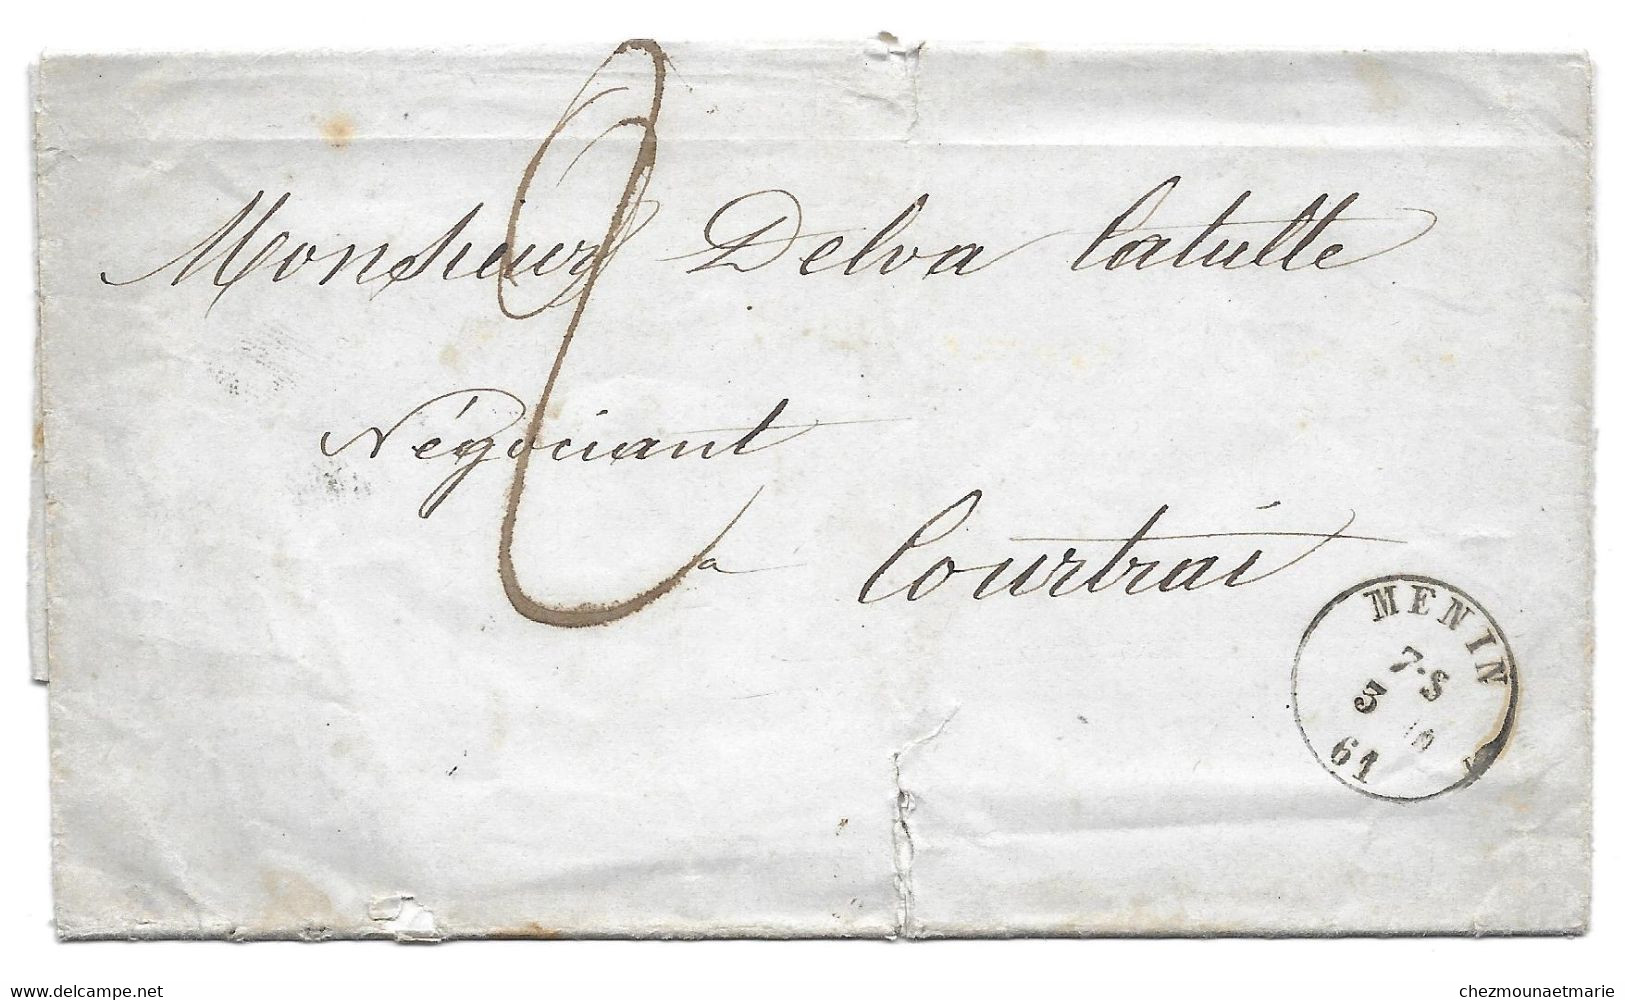 2
Monsieur Delva Catulle
Négociant
a Courtrai
MENIN
7·S
61
www.delcampe.net
chezmounaetmarie